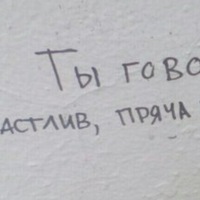 Ты гово
астлив, пряча